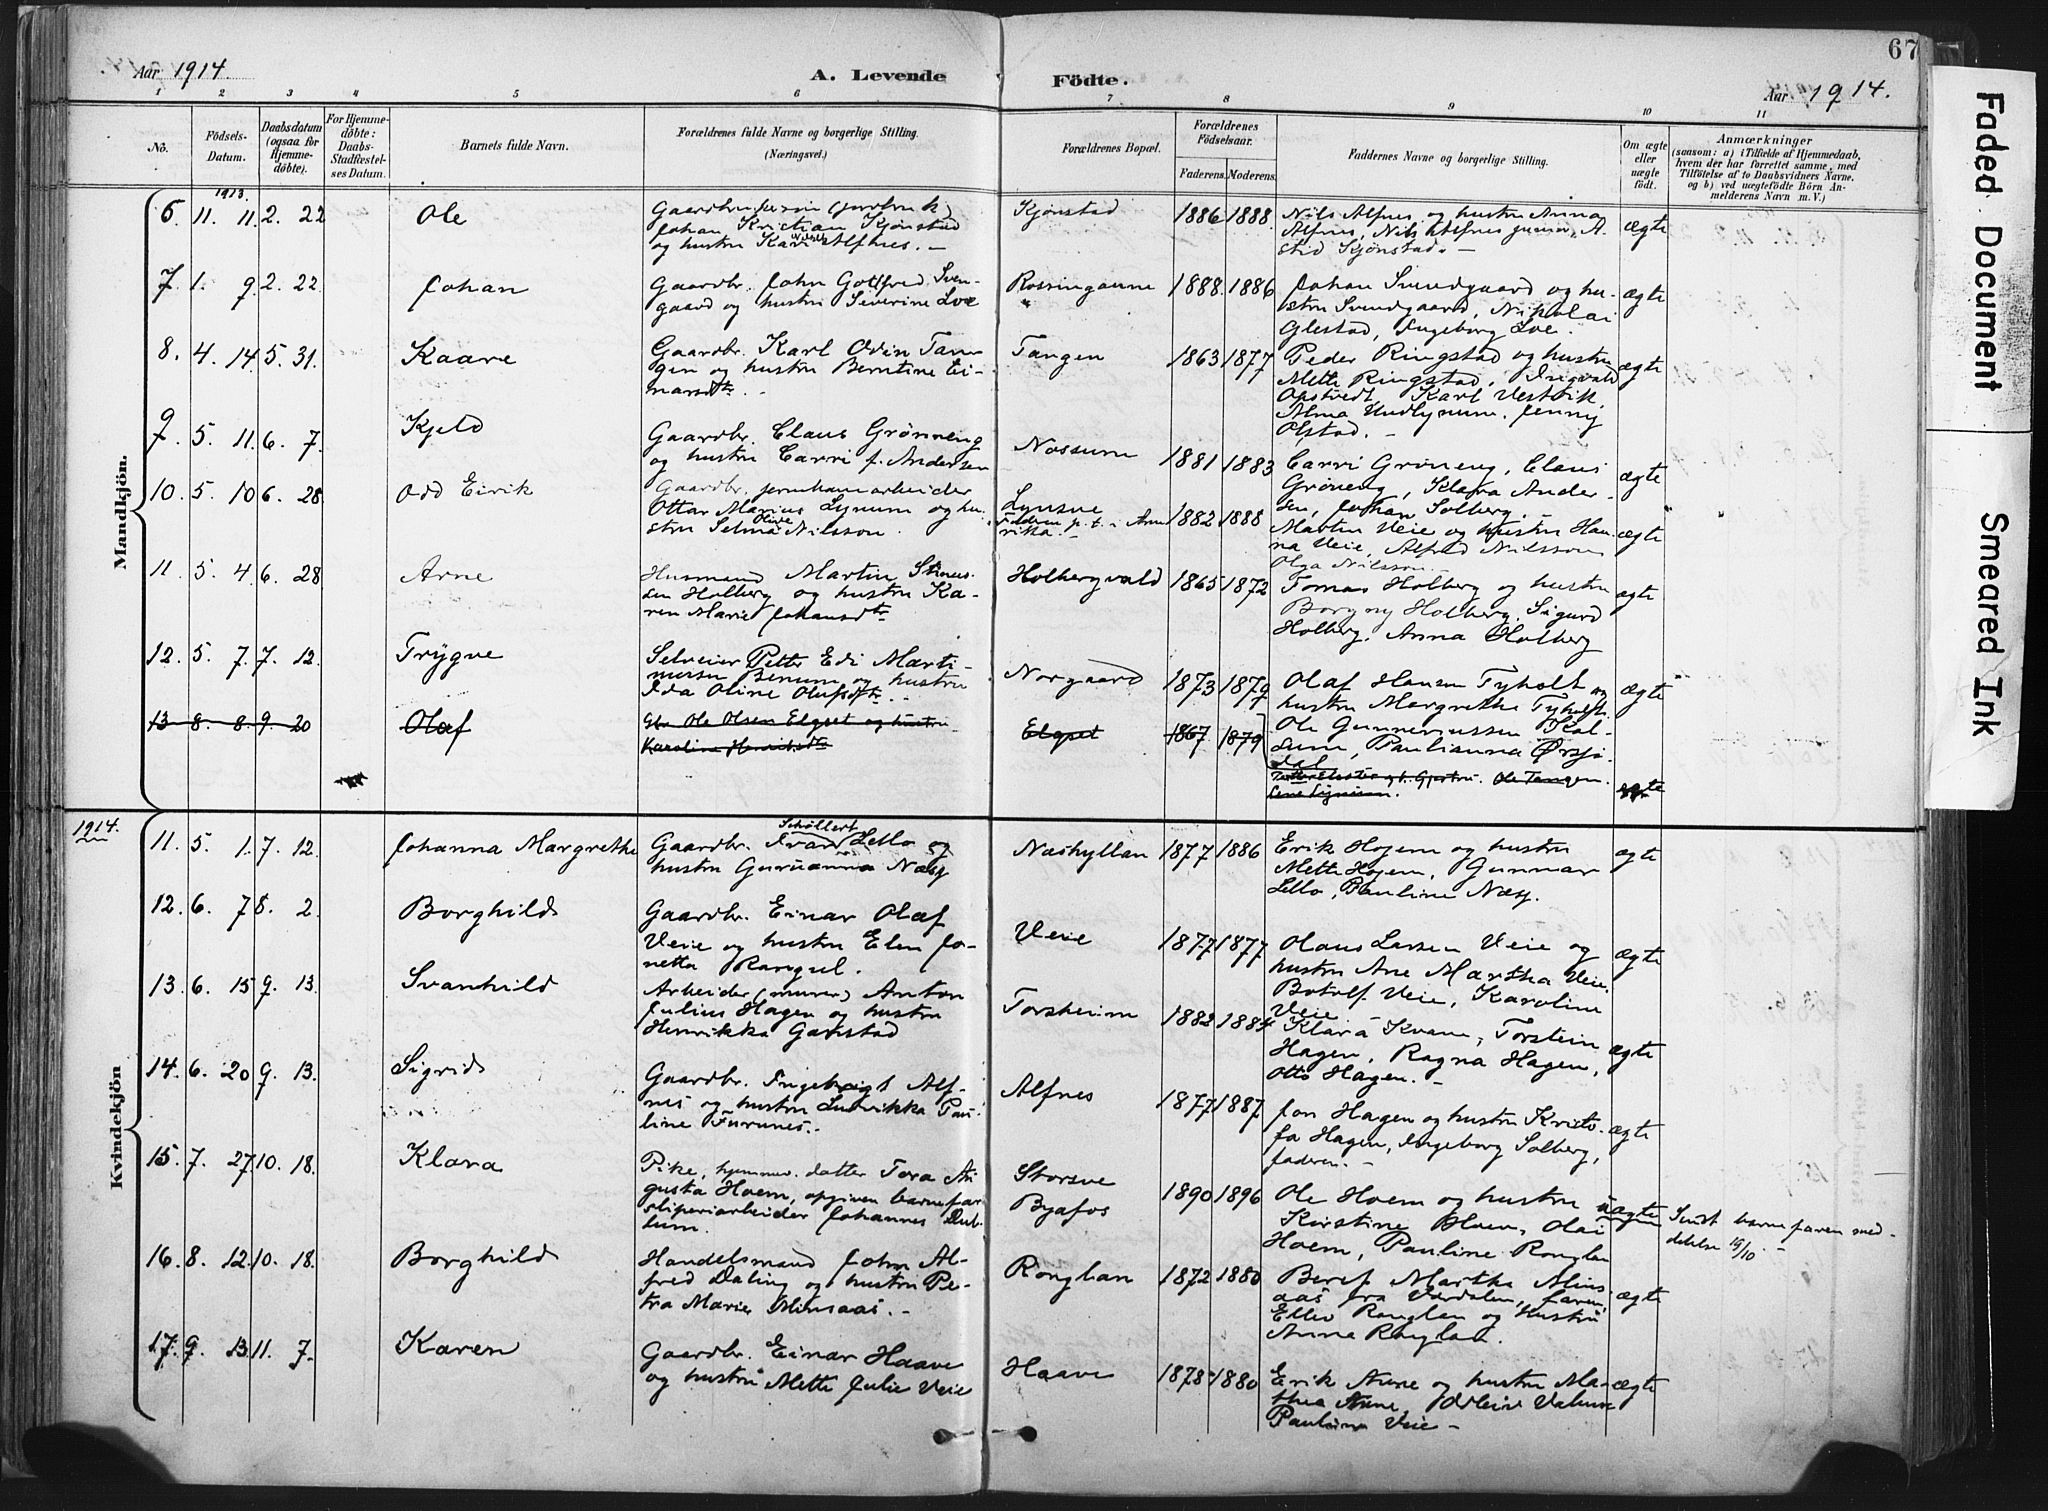 Aar 1914.
A. Levende
Födte.
Aar 1914.
67
Faded Document
Smeared Ink
1 2 3 4 5 6 7 8 9 10 11
No.
Födsels-Datum.
Daabsdatum (ogsaa for Hjemmedöbte).
For Hjemmedöbte: Daabs-Stadfæstelses Datum.
Barnets fulde Navn.
Forældrenes fulde Navne og borgerlige Stilling.
(Næringsvei.)
Forældrenes Bopæl.
Forældrenes Födselsaar.
Faderens. Moderens.
Faddernes Navne og borgerlige Stilling.
Om ægte eller uægte födt.
Anmærkninger
(saasom: a) i Tilfælde af Hjemmedaab, hvem der har forrettet samme, med Tilföielse af to Daabsvidners Navne. og b) ved uægtefödte Börn Anmelderens Navn m. V.)
Mandkjön.
1913.
6 11. 11. 2. 22 Ole
Johan Kristian Kjønstad
og hustru Kari Alfnes. -
Kjønstad 1886 1888
Nils Alfnes og hustru Anna
Alfnes, Nils Alfnes junior, A-
stid Kjønstad. -
ægte
7. 1. 9. 2. 22. Johan
Gaardbr. John Gotfred Sven-
gaard og hustru Severine Loe
Rossingaune 1888. 1886
Johan Svendgaard og hu-
stru Svendgaard, Nikolai
Glestad, Ingeborg Loe.
ægte
8. 4. 14. 5. 31. Kaare
Gaardbr. Karl Odin Tan-
gen og hustru Berntine Ei-
narsdtr.
Tangen 1863 1877
Peder Ringstad og hustru
Mette Ringstad, Ingvald
Opstvedt, Karl Vestvik,
Alma Lynum, Jenny
Olstad. -
ægte
9. 5. 11. 6. 7. Kjeld
Gaardbr. Claus Grønneng
og hustru Carri f. Andersen
Nossum 1881 1883
Carri Grøneng, Claus
Grøneng, Klara Ander-
sen, Johan Solberg. -
ægte
10. 5. 10 6. 28. Odd Eirik
Gaardbr. jernbanearbeider
Ottar Marius Lynum og hu-
stru Selma Olive Nilsson.
faderen p. t. i Ame
rika. -
1882 1888
Martin Veie og hustru Han-
na Veie, Alfred Nilsson
Olga Nilsson. -
ægte
11. 5. 4 6. 28 Arne
Husmand Martin Simus-
sen Holberg og hustru Ka-
ren Marie Johansdtr
Holbergvald 1865 1872
Tomas Holberg og hustru
Borgny Holberg, Sigurd
Holberg, Anna Holberg
ægte
12. 5. 7. 7. 12. Trygve
Selveier Petter Edi Marti-
nusen Benum og hustru
Ida Oline Olufsdtr. -
Norgaard 1873 1879
Olaf Hansen Tyholt og
hustru Margrethe Tyholt.
Ole Gunneriussen Kol-
sum, Paulianna Ørsjø-
dal
ægte
13 8. 8. 9. 20 Olaf
Gbr. Ole Olsen Elgset og hustru
Karoline Henriksdtr
Elgset 1867 1879
Ole Tangen.
Lene Lynum.
ægte
Kvindekjön
1914.
11. 5. 1. 7. 12. Johanna Margrethe
Gaardbr. Ivar Schøllert Lello og
hustru Guruanna Næsg
Næshyllan 1877 1886
Erik Hojem og hustru
Mette Hojem, Gunnar
Lello, Pauline Næsg.
ægte
12. 6. 7 8. 2. Borghild
Gaardbr. Einar Olaf
Veie og hustru Elen Jo-
netta Rangul.
Veie 1877 1877
Olaus Larsen Veie og
hustru Ane Martha Veie.
Botolf Veie, Karoline
Veie
ægte
13. 6. 15 9. 13. Svanhild
Arbeider (murer) Anton
Julius Hagen og hustru
Henrikka Garstad
Torsheim 1882 1884
Klara Kvam, Torstein
Hagen, Ragna Hagen,
Otto Hagen. -
ægte
14. 6. 20 9. 13. Sigrid
Gaardbr. Ingebrigt Alf-
nes og hustru Ludvikka Pau-
line Furunes. -
Alfnes 1877 1887
Jon Hagen og hustru Kristo-
fa Hagen, Ingeborg Solberg,
faderen. -
ægte
15. 7. 27 10. 18. Klara
Pike, hjemmev. datter Tora Au-
gusta Hoem, opgiven barnefar
sliperiarbeider Johannes Dub-
lum.
Storsve
Byafos 1890 1896
Ole Hoem og hustru
Kirstine Hoem, Olai
Hoem, Pauline Ronglan
uægte
Sendt barnefaren med-
delelse 19/10. -
16. 8. 12. 10. 18. Borghild
Handelsmand John Al-
fred Daling og hustru Pe-
tra Marie Minsaas. -
Ronglan 1872 1880
Beret Martha Mins-
aas fra Værdalen, faren,
Ellev Ronglan og hustru
Anna Ronglan.
ægte
17. 9. 13. 11. 7. Karen
Gaardbr. Einar Haave
og hustru Mette Julie Veie
Haave 1878 1880
Erik Aune og hustru Ma-
thea Aune,
Pauline Veie -
ægte